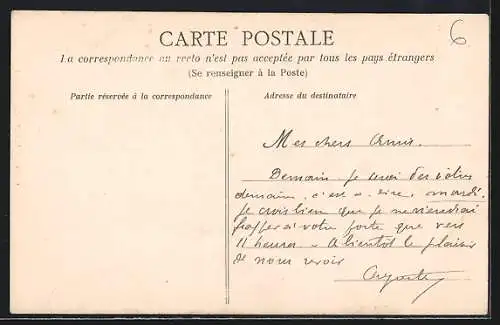 6
CARTE POSTALE
La correspondance au recto n'est pas acceptée par tous les pays étrangers
(Se renseigner à la Poste)
Partie réservée à la correspondance
Adresse du destinataire
Mes chers Amis.
Demain je serai des vôtres
demain, c'est a dire, mardi.
Je crois bien que je ne viendrai
frapper a votre porte que vers
11 heures - A bientôt le plaisir
de nous revoir